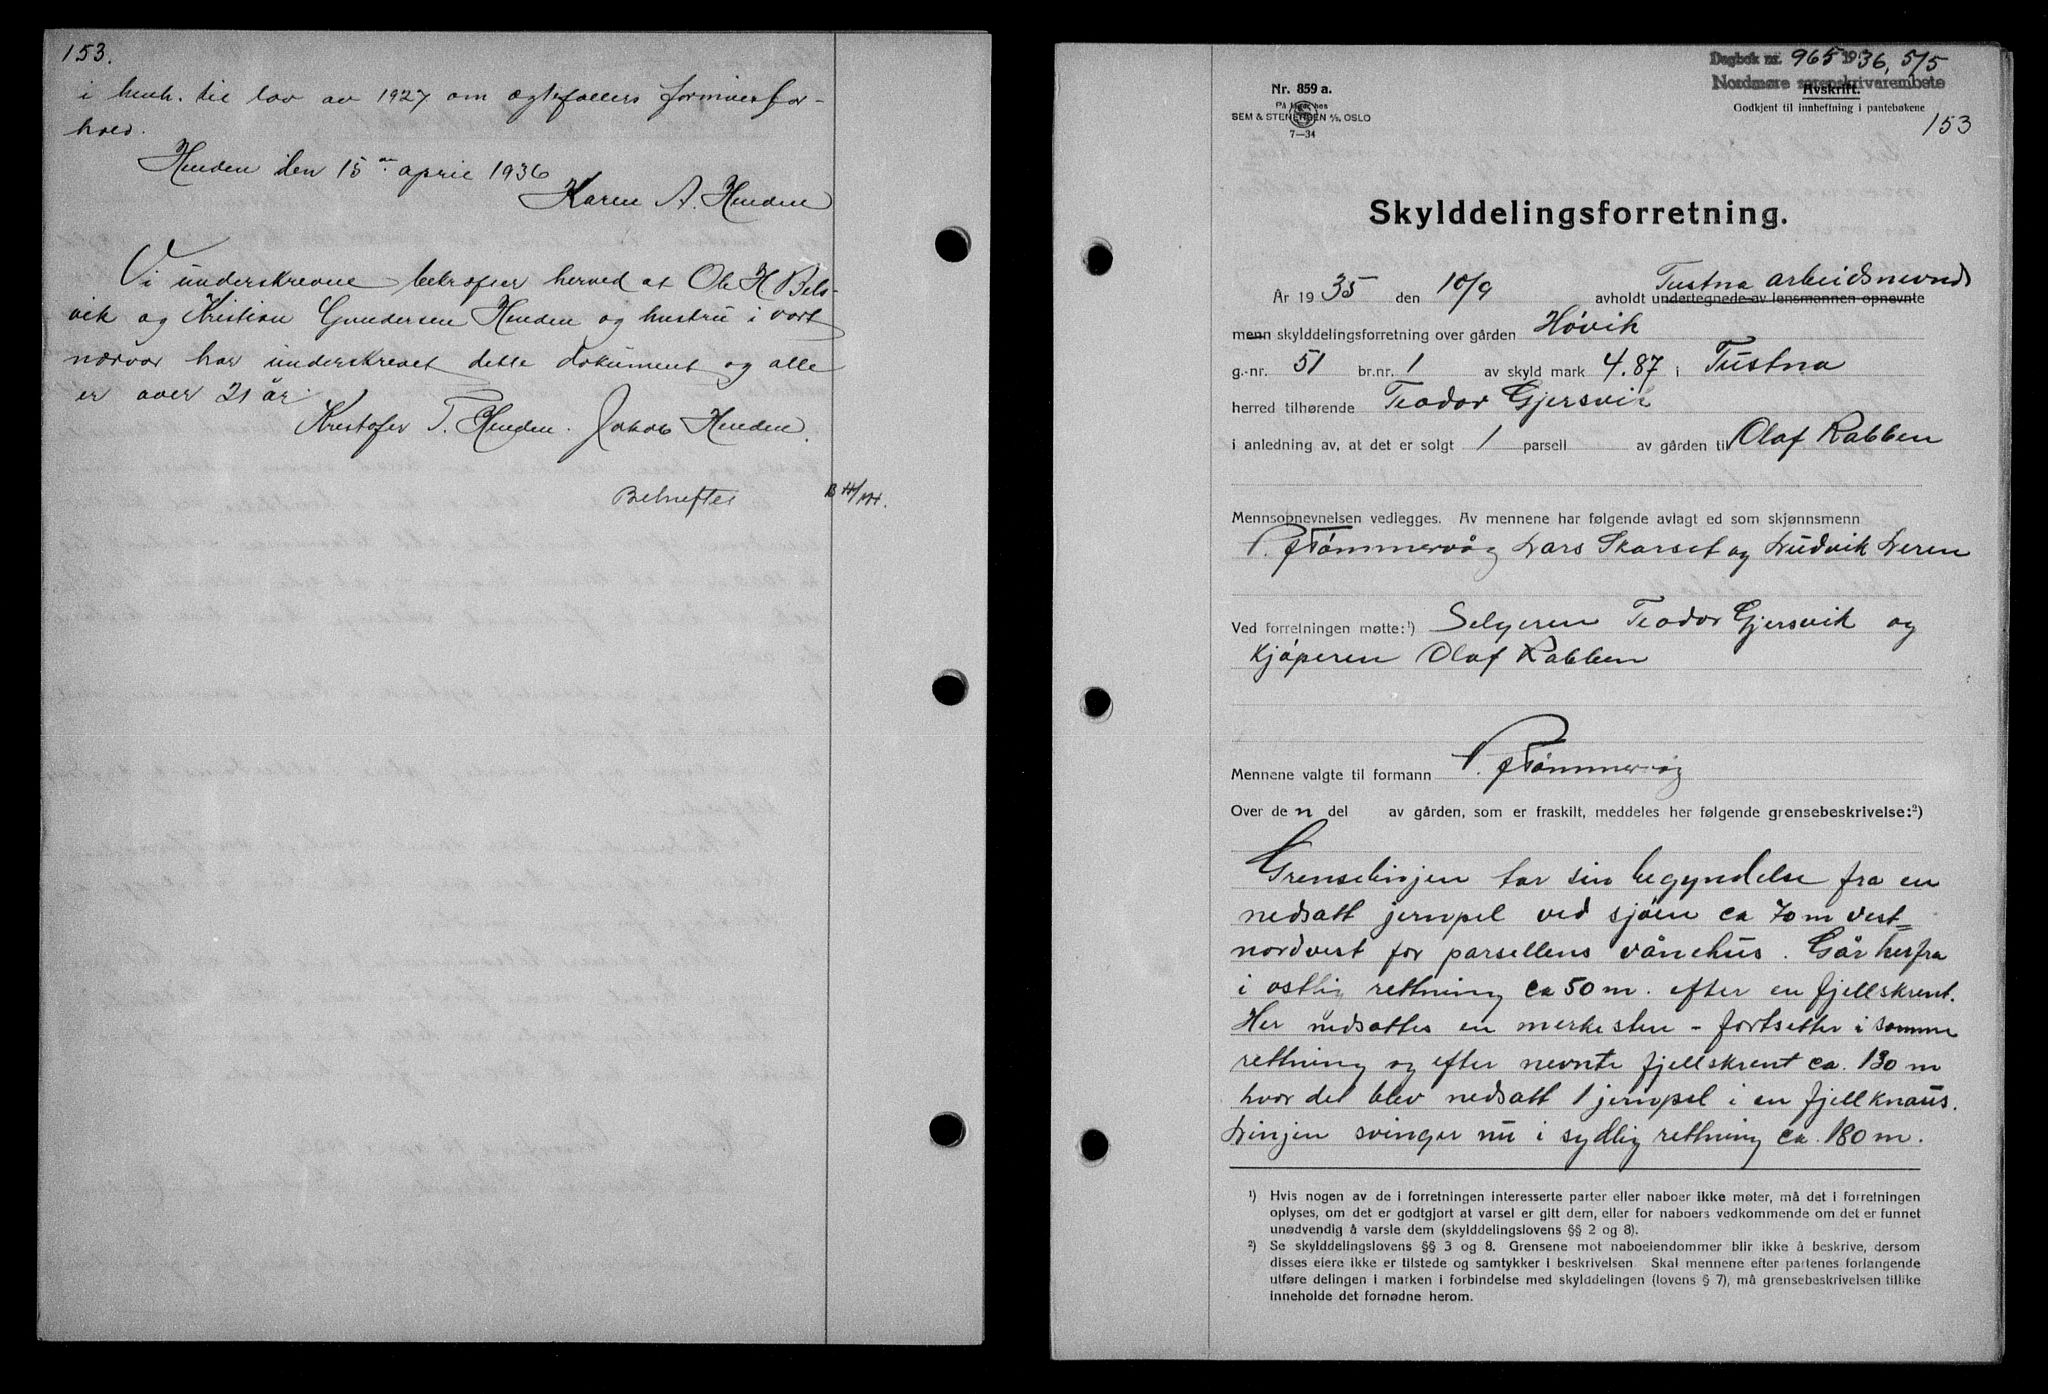 153.
i henh. til lov av 1927 om ægtefællers formuesfor-
hold.
Henden den 15 de april 1936
Karen A. Henden
Vi underskrevne bekræfter herved at Ole H Bels-
vik og Kristian Gundersen Henden og hustru i vort
nærvær har underskrevet dette dokument og alle
er over 21 år.
Kristofer T. Henden. Jakob Henden.
Bekreftes
Dagbok nr. 965 1936, 5/5
Nordmøre sorenskriverembete
Nr. 859 a.
På lager hos
SEM & STENERSEN A/S, OSLO
7—34
Avskrift.
Godkjent til innheftning i pantebøkene
153
Skylddelingsforretning.
År 1935 den 10/9 avholdt undertegnede av lensmannen opnevnte Tustna arbeidsnevnd
menn skylddelingsforretning over gården Høvik
g.-nr. 51 br.nr. 1 av skyld mark 4.87 i Tustna
herred tilhørende Teodor Gjersvik
i anledning av, at det er solgt 1 parsell av gården til Olaf Rabben
Mennsopnevnelsen vedlegges. Av mennene har følgende avlagt ed som skjønnsmenn
P. Tømmervåg Lars Skarset og Ludvik Leren
Ved forretningen møtte:¹) Selgeren Teodor Gjersvik og
kjøperen Olaf Rabben
Mennene valgte til formann P. Tømmervåg
Over den del av gården, som er fraskilt, meddeles her følgende grensebeskrivelse:²)
Grenselinjen tar sin begyndelse fra en
nedsatt jernpel ved sjøen ca 70 m vest-
nordvest for parsellens vånehus. Går herfra
i ostlig rettning ca 50 m. efter en fjellskrent.
Her nedsattes en merkesten - fortsetter i samme
rettning og efter nevnte fjellskrent ca. 130 m
hvor det blev nedsatt 1 jernpel i en fjellknaus.
Linjen svinger nu i sydlig rettning ca. 180 m.
¹) Hvis nogen av de i forretningen interesserte parter eller naboer ikke møter, må det i forretningen
oplyses, om det er godtgjort at varsel er gitt dem, eller for naboers vedkommende om det er funnet
unødvendig å varsle dem (skylddelingslovens §§ 2 og 8).
²) Se skylddelingslovens §§ 3 og 8. Grensene mot naboeiendommer blir ikke å beskrive, dersom
disses eiere ikke er tilstede og samtykker i beskrivelsen. Skal mennene efter partenes forlangende
utføre delingen i marken i forbindelse med skylddelingen (lovens § 7), må grensebeskrivelsen tillike
inneholde det fornødne herom.